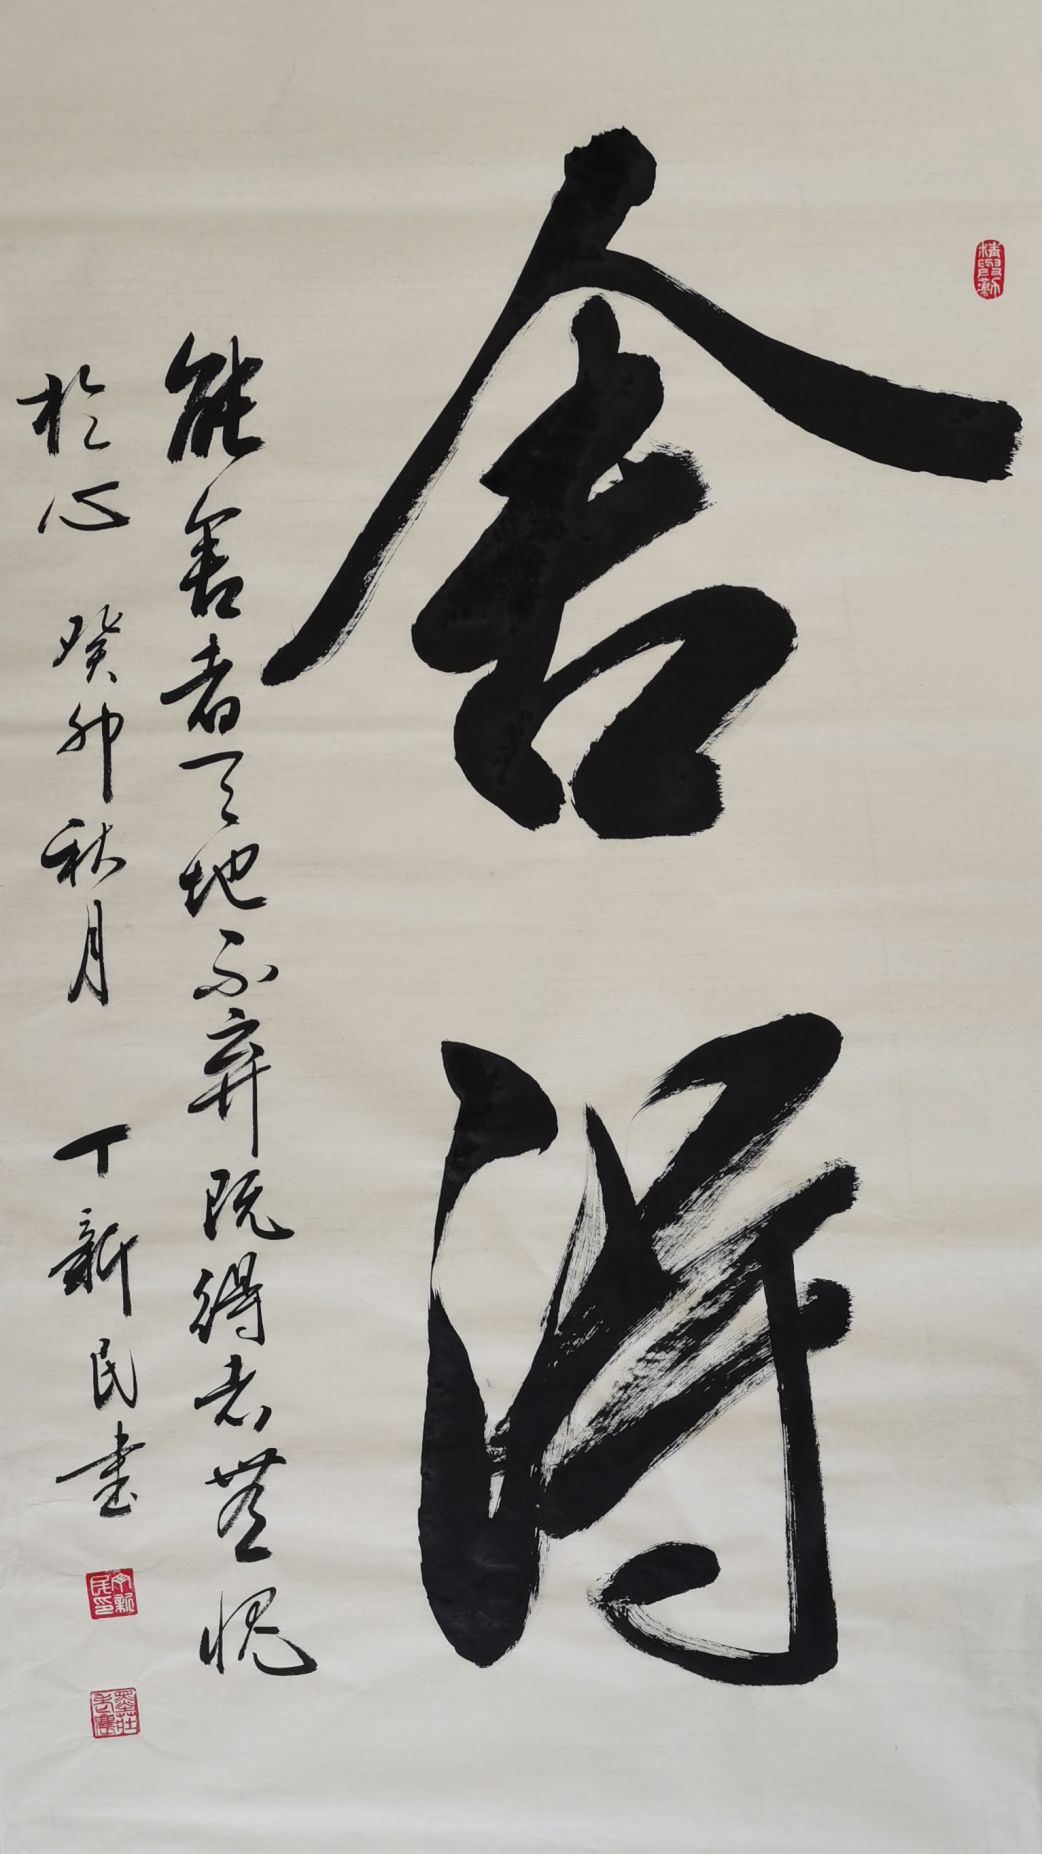 舍得
能舍者天地不弃既得者无愧
於心 癸卯秋月 丁新民书